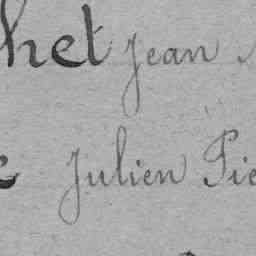 het Jean
Julien Pie